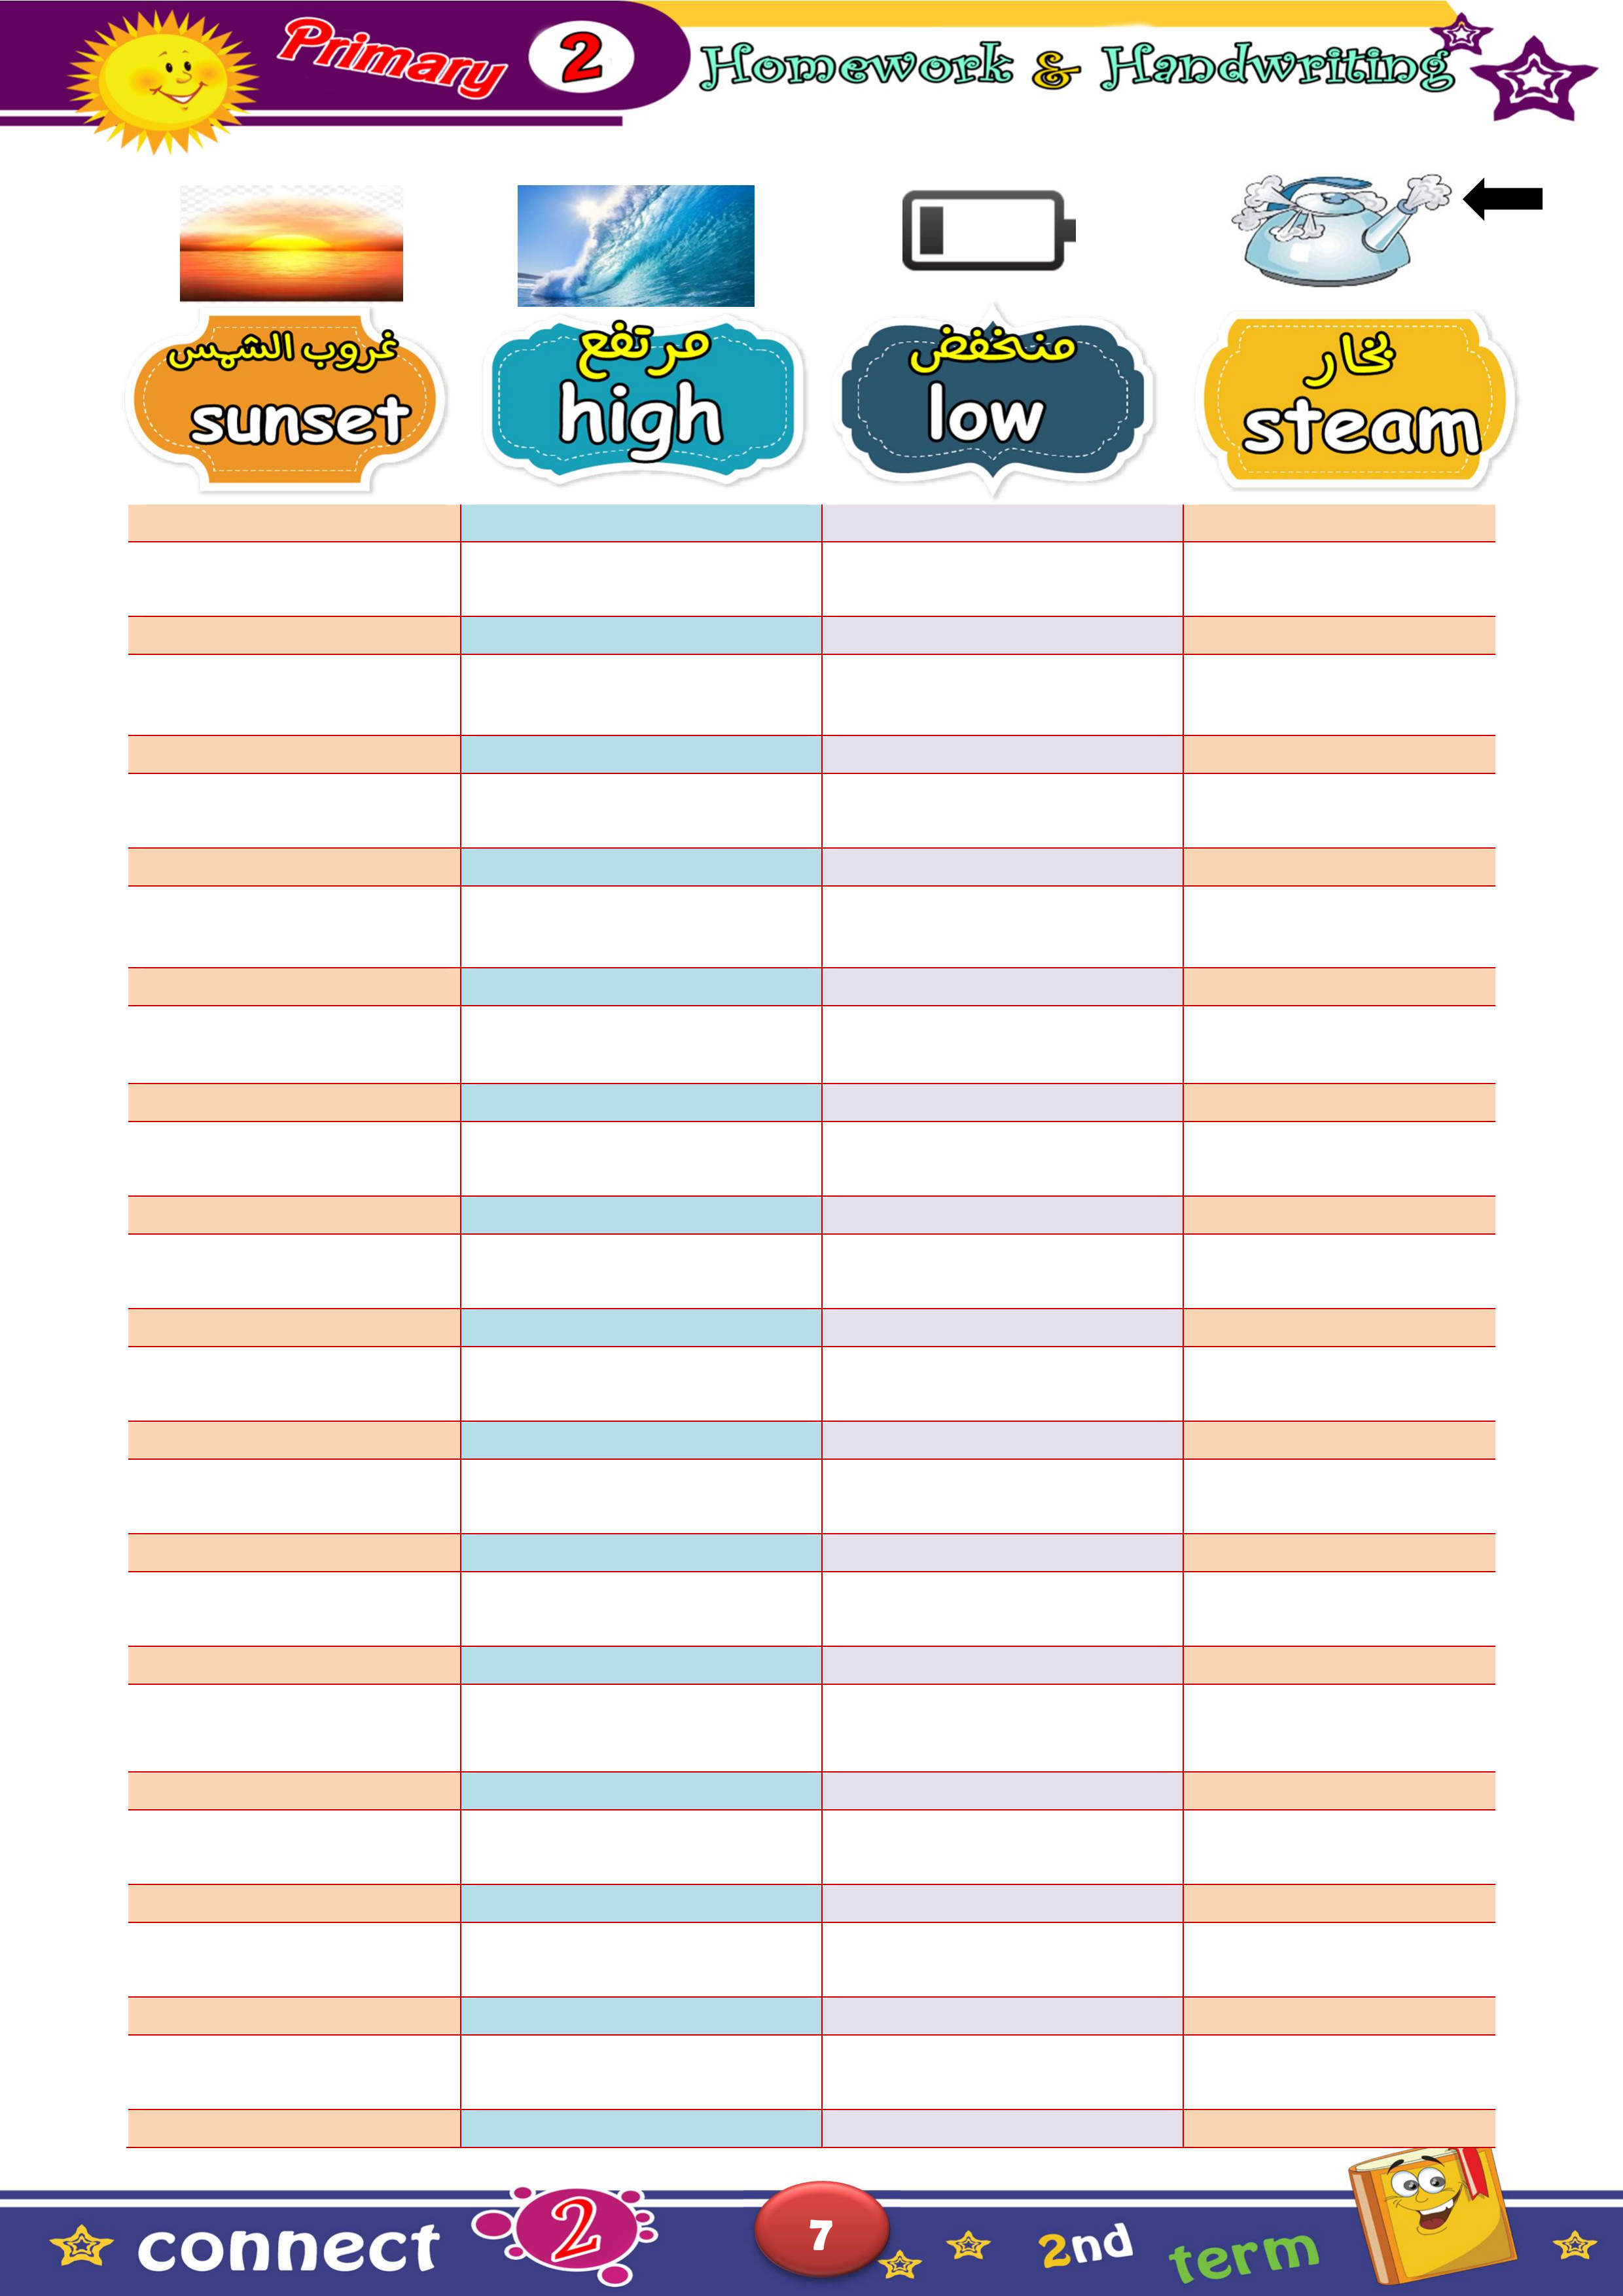 Primary 2 Homework & Handwriting
غروب الشمس
sunset
مرتفع
high
منخفض
low
بخار
steam
connect 2 7 2nd term